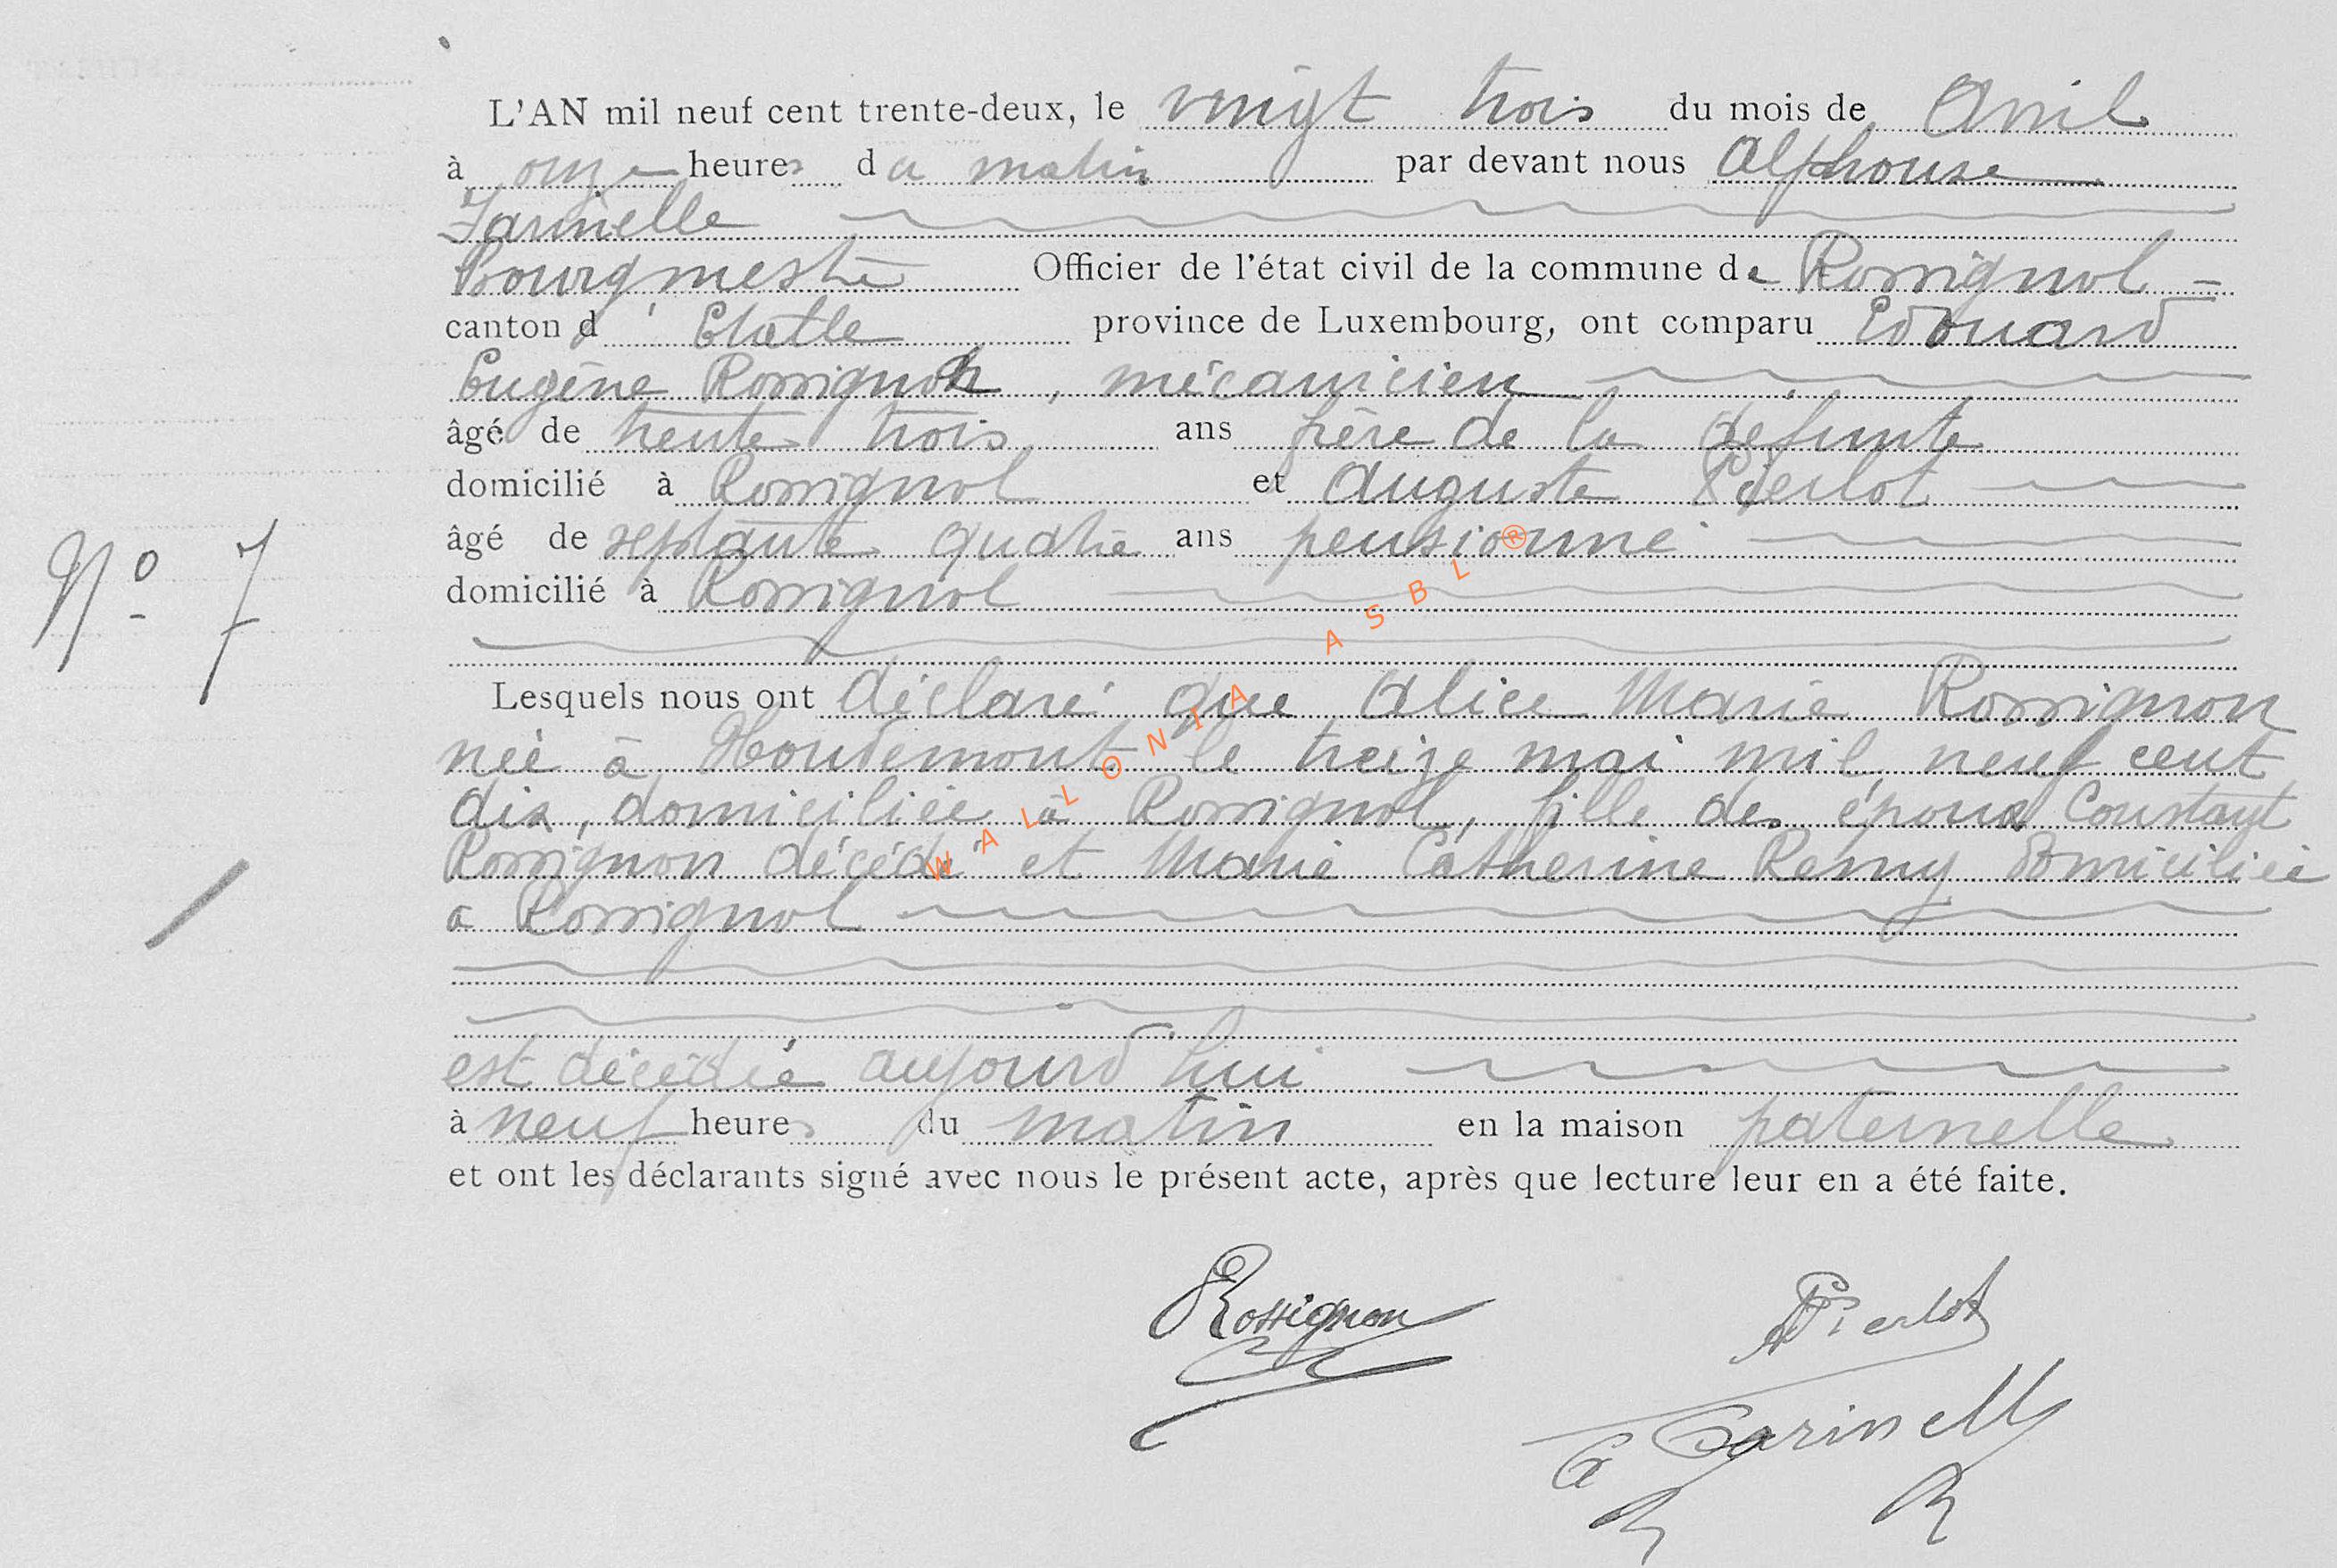 L'AN mil neuf cent trente-deux, le vingt trois du mois de Avril
à onze heures du matin par devant nous Alphonse
Jarinelle
Bourgmestre Officier de l'état civil de la commune de Rossignol
canton d' Etalle province de Luxembourg, ont comparu Edouard
Eugène Rossignon, mécanicien
âgé de trente trois ans frère de la défunte
domicilié à Rossignol et Auguste Pierlot
âgé de septante quatre ans pensionné
domicilié à Rossignol
N° 7
Lesquels nous ont déclaré que Alice Marie Rossignon
née à Houdemont le treize mai mil neuf cent
dix, domiciliée à Rossignol, fille des époux Constant
Rossignon décédé et Marie Catherine Remy domiciliée
à Rossignol
est décédée aujourd'hui
à neuf heures du matin en la maison paternelle
et ont les déclarants signé avec nous le présent acte, après que lecture leur en a été faite.
Rossignon
A Pierlot
Jarinelle
WALLONIA ASBL ®